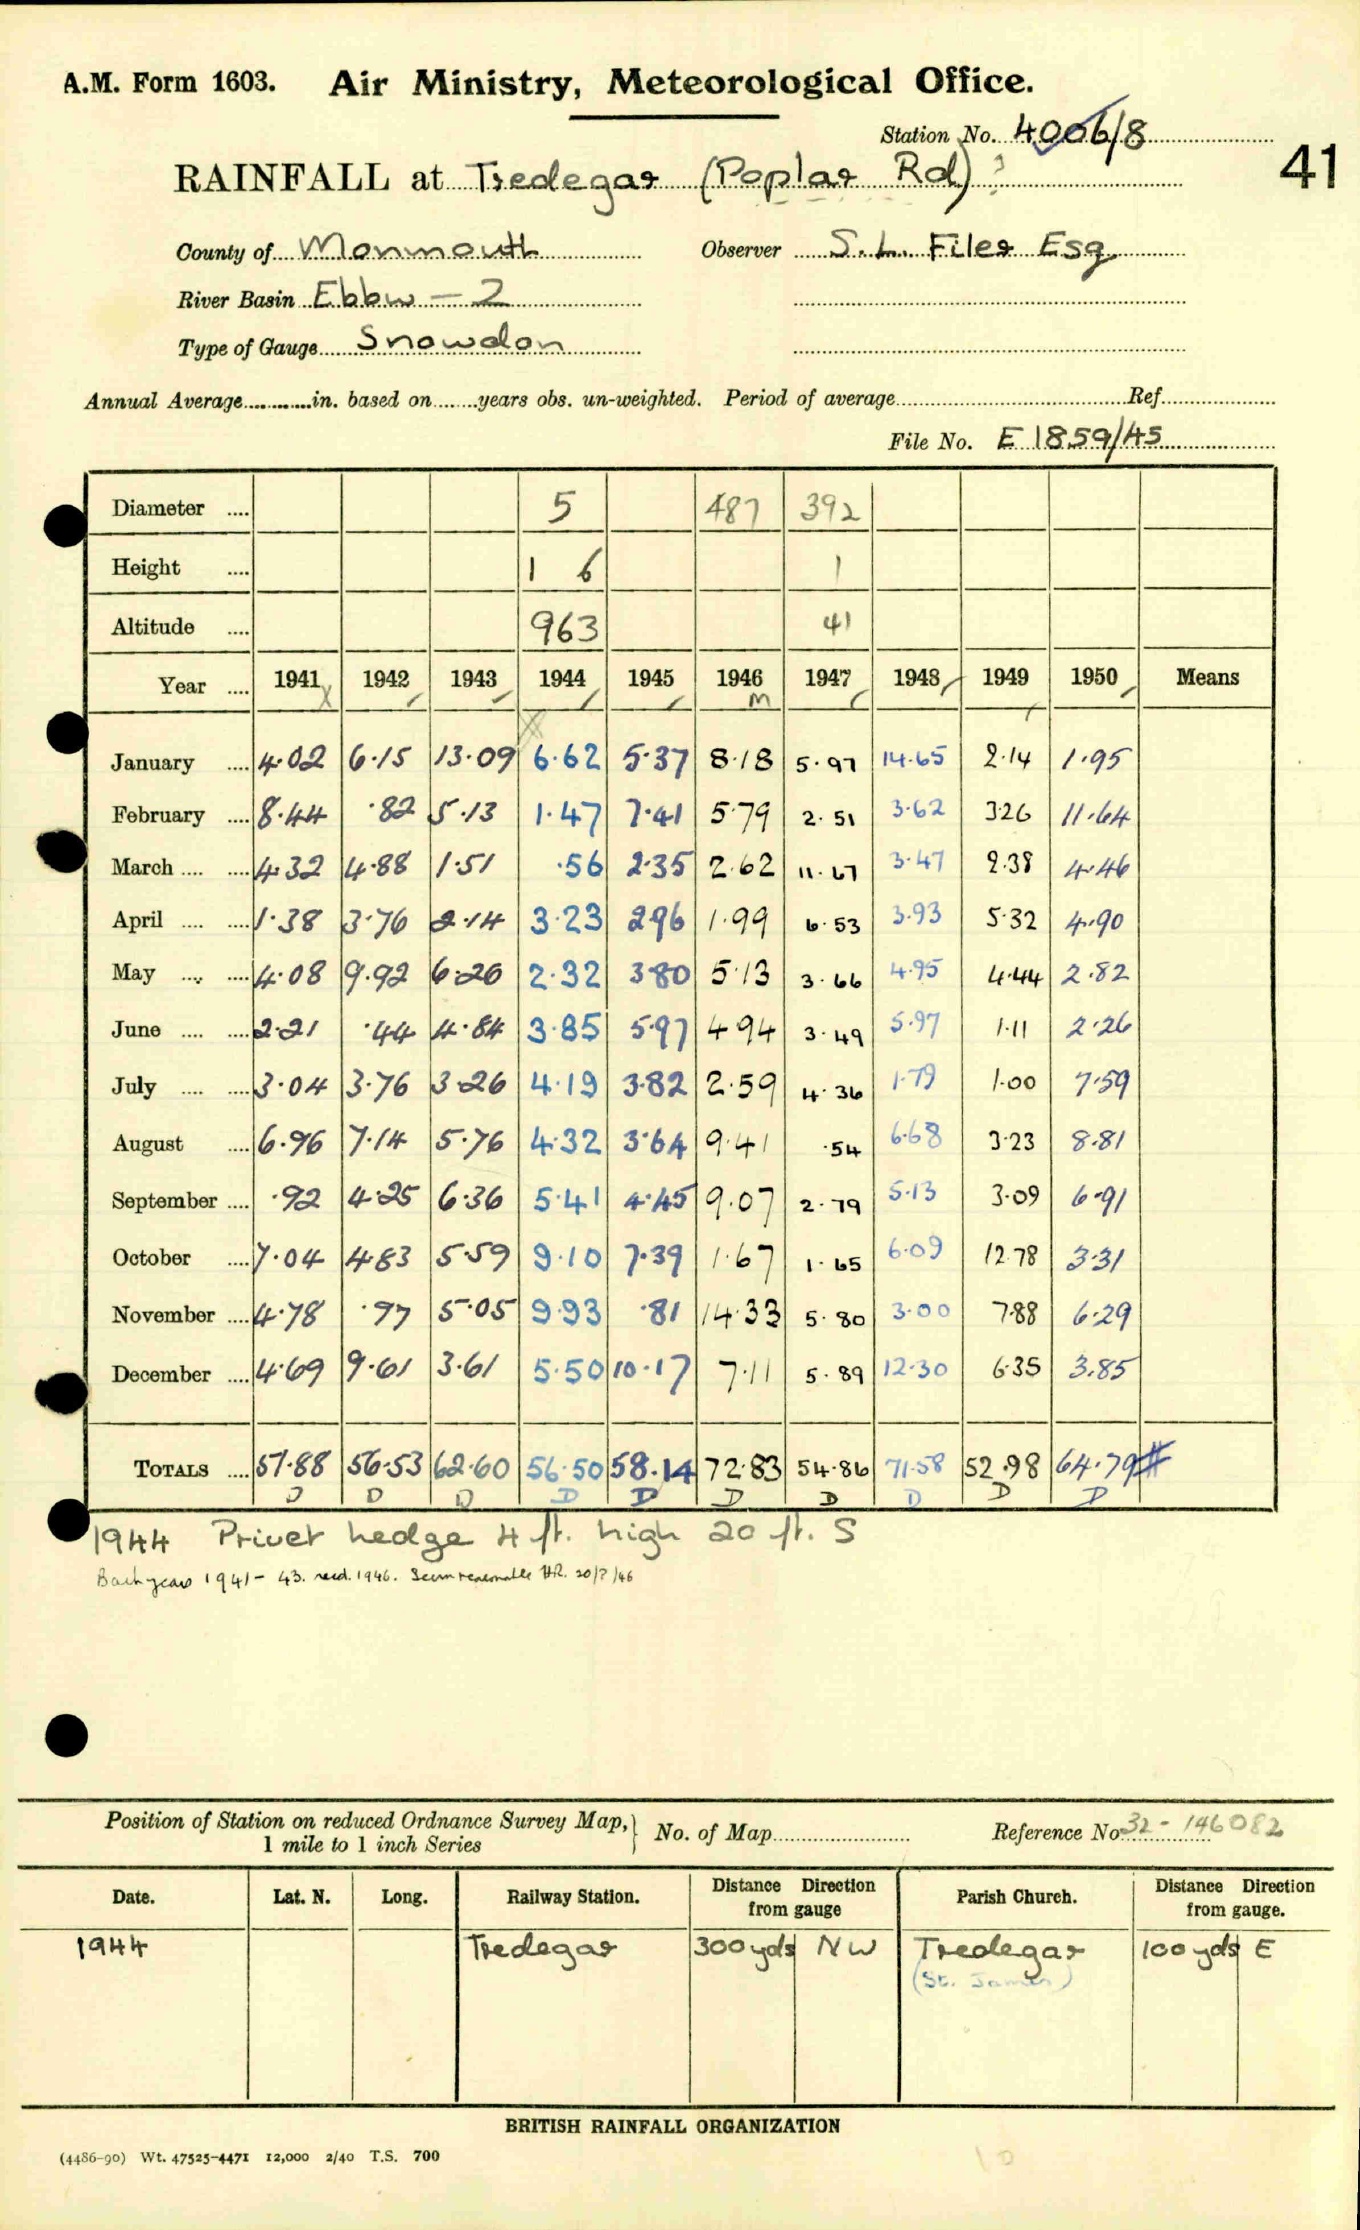 A.M. Form 1603. Air Ministry, Meteorological Office.
Station No. 4006/8
41
RAINFALL at Tredegar (Poplar Rd) ?
County of Monmouth Observer S.L. Filer Esq
River Basin Ebbw - 2
Type of Gauge Snowdon
Annual Average............in. based on........years obs. un-weighted. Period of average............Ref............
File No. E 1859/45
Diameter .... 5 487 392
Height .... 1 6 1
Altitude .... 963 41
Year .... 1941 1942 1943 1944 1945 1946 1947 1948 1949 1950 Means
M
January .... 4.02 6.15 13.09 6.62 5.37 8.18 5.97 14.65 2.14 1.95
February .... 8.44 .82 5.13 1.47 7.41 5.79 2.51 3.62 3.26 11.64
March .... .... 4.32 4.88 1.51 .56 2.35 2.62 11.67 3.47 2.38 4.46
April .... .... 1.38 3.76 2.14 3.23 2.96 1.99 6.53 3.93 5.32 4.90
May .... .... 4.08 9.92 6.20 2.32 3.80 5.13 3.66 4.95 4.44 2.82
June .... .... 2.21 .44 4.84 3.85 5.97 4.94 3.49 5.97 1.11 2.26
July .... .... 3.04 3.76 3.26 4.19 3.82 2.59 4.36 1.79 1.00 7.59
August .... 6.96 7.14 5.76 4.32 3.64 9.41 .54 6.68 3.23 8.81
September .... .92 4.25 6.36 5.41 4.45 9.07 2.79 5.13 3.09 6.91
October .... 7.04 4.83 5.59 9.10 7.39 1.67 1.65 6.09 12.78 3.31
November .... 4.78 .97 5.05 9.93 .81 14.33 5.80 3.00 7.88 6.29
December .... 4.69 9.61 3.61 5.50 10.17 7.11 5.89 12.30 6.35 3.85
TOTALS .... 51.88 56.53 62.60 56.50 58.14 72.83 54.86 71.58 52.98 64.79
D D D D D D D D D D
1944 Privet hedge 4 ft. high 20 ft. S
Back years 1941 - 43. recd. 1946. Seem reasonable
Position of Station on reduced Ordnance Survey Map, 1 mile to 1 inch Series } No. of Map............ Reference No. 32 - 146082
Date. Lat. N. Long. Railway Station. Distance Direction from gauge Parish Church. Distance Direction from gauge.
1944 Tredegar 300 yds NW Tredegar 100 yds E
(St. James)
BRITISH RAINFALL ORGANIZATION
(4486-90) Wt. 47525-4471 12,000 2/40 T.S. 700